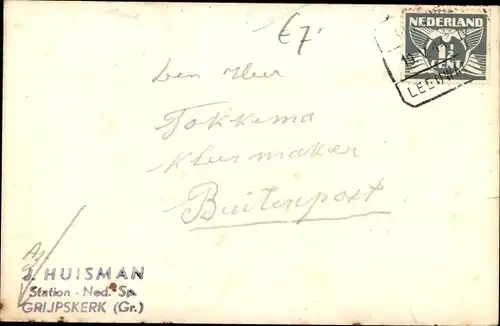 €7,-
NEDERLAND
1½
CENT
LEEUW
Den Heer
Fokkema
Kleermaker
Buitenpost
J. HUISMAN
Station - Ned. Sp.
GRIJPSKERK (Gr.)